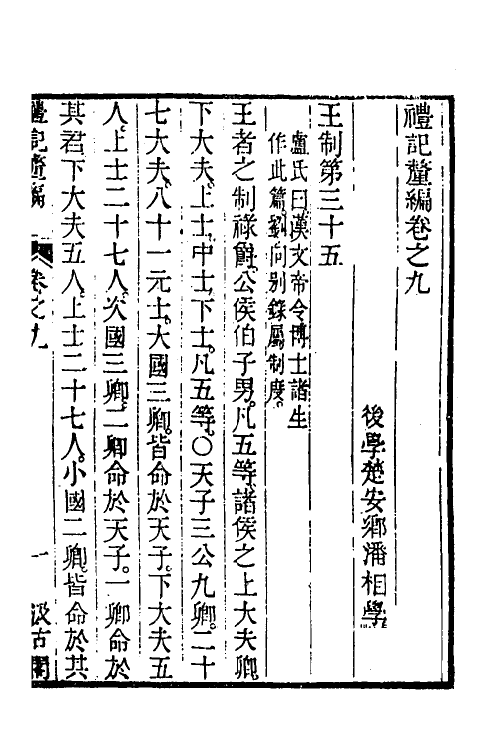 禮記釐編卷之九
後學楚安鄉潘相學
王制第三十五
盧氏曰漢文帝令博士諸生
作此篇劉向别錄屬制度。
王者之制祿爵。公侯伯子男。凡五等。諸侯之上大夫卿。
下大夫。上士。中士。下士。凡五等。〇天子三公九卿。二十
七大夫。八十一元士。大國三卿。皆命於天子。下大夫五
人。上士二十七人。次國三卿。二卿命於天子。一卿命於
其君。下大夫五人。上士二十七人。小國二卿。皆命於其
禮記釐編
卷之九
一
汲古閣